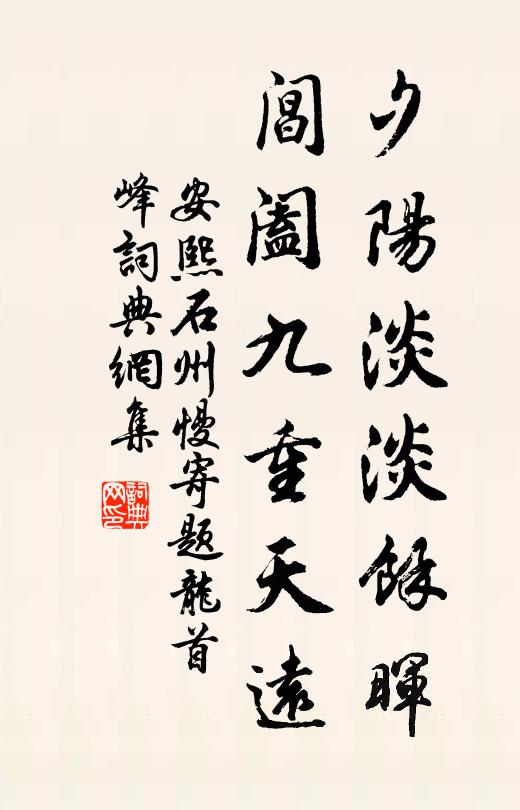 夕陽淡淡餘暉
閶闔九重天遠
安熙石州慢寄題龍首
峰詞典網集
詞典
网印